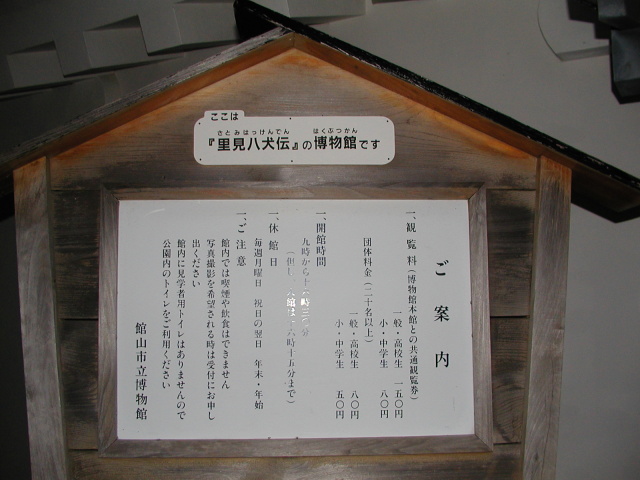 ここは
さとみはっけんでん はくぶつかん
『里見八犬伝』の博物館です
ご案内
一、観覧料(博物館本館との共通観覧券)
一般・高校生 一五〇円
小・中学生 八〇円
団体料金(二十名以上)
一般・高校生 八〇円
小・中学生 五〇円
一、開館時間
九時から十 時三 分
(但し、入館は 時十五分まで)
一、休館日
毎週月曜日 祝日の翌日 年末・年始
一、ご注意
館内では喫煙や飲食はできません
写真撮影を希望される時は受付にお申し
出ください
館内に見学者用トイレはありませんので
公園内のトイレをご利用ください
館山市立博物館